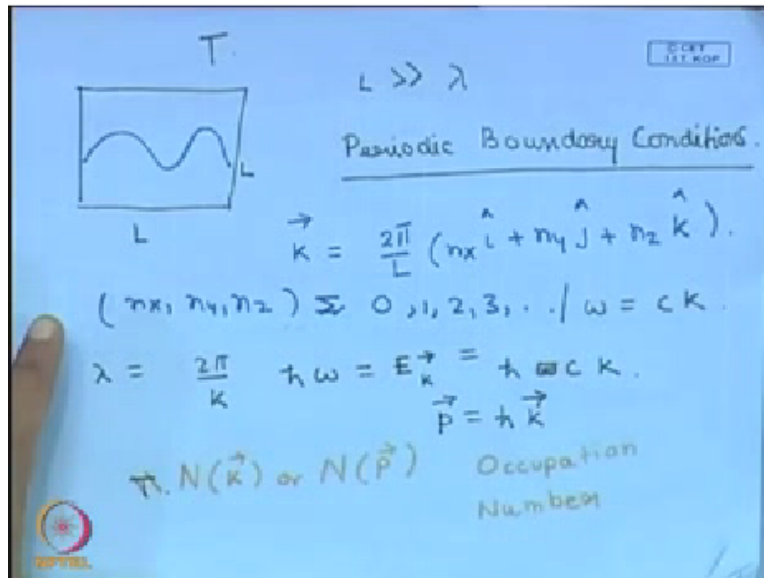 T.
© CET
I.I.T. KGP
L >> λ
L
L
Periodic Boundary Conditions.
k⃗ = 2π/L (nx î + ny ĵ + nz k̂).
(nx, ny, nz) = 0, 1, 2, 3, . . / ω = c k.
λ = 2π/k ħω = E_k⃗ = ħ c k.
p⃗ = ħ k⃗
N(k⃗) or N(p⃗) Occupation
Number
NPTEL